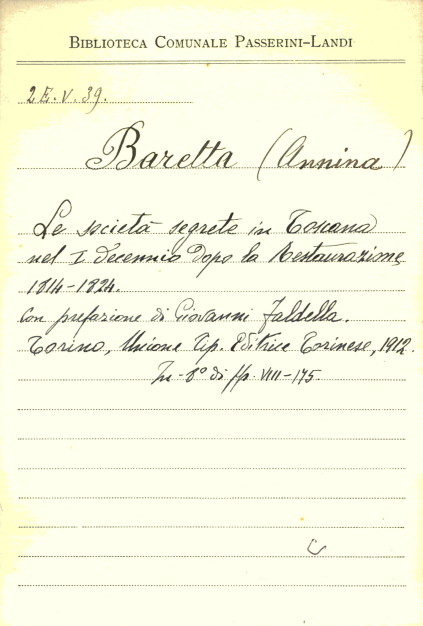 BIBLIOTECA COMUNALE PASSERINI-LANDI
2E.V.39.
Baretta (Annina)
Le società segrete in Toscana
nel I decennio dopo la Restaurazione
1814-1824.
con prefazione di Giovanni Faldella.
Torino, Unione Tip. Editrice Torinese, 1912.
In-8° di pp. VIII-175.